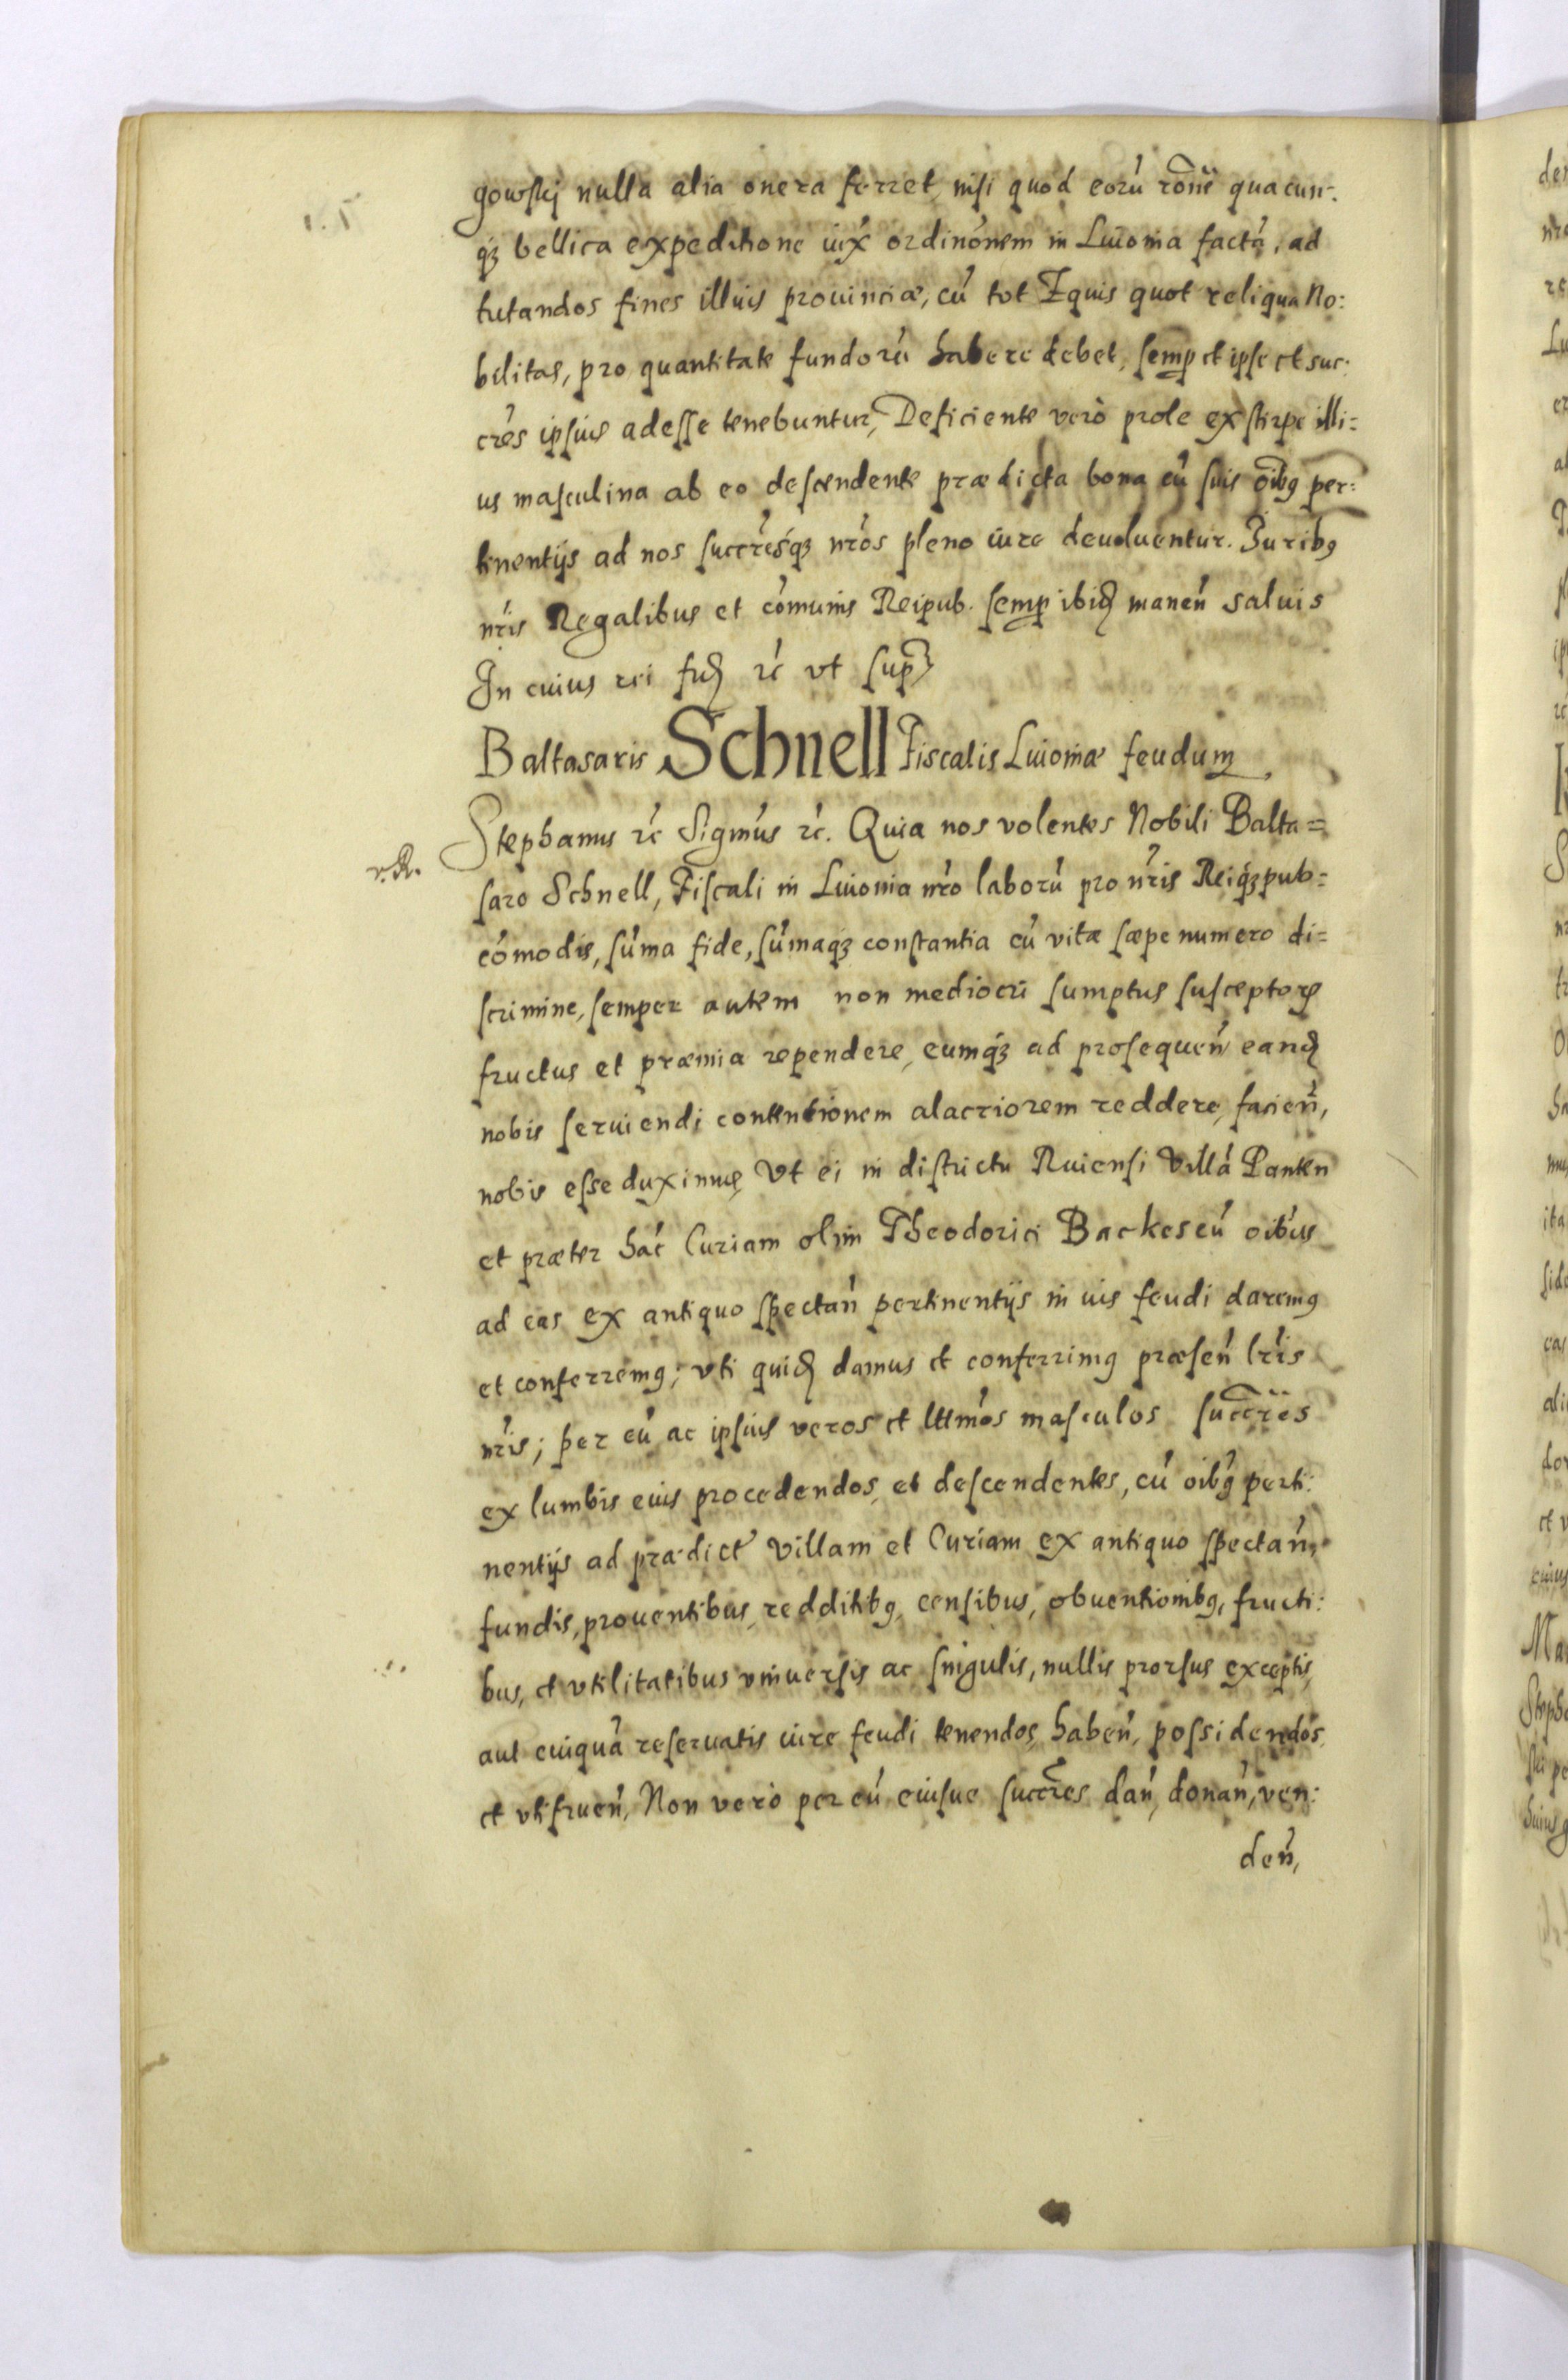 gowskj nulla alia onera ferret, nisi quod eorũ rõne quacun-
q3 bellica expeditione iux ordinõnem in Liuonia factã, ad
tutandos fines illius prouinciæ, cũ tot Equis quot reliqua No:
bilitas, pro quantitate fundorũ habere debet, semp et ipse et suc:
crẽs ipsius adesse tenebuntur, Deficiente verò prole ex stirpe illi=
us masculina ab eo descendente prædicta bona cũ suis oĩbg per:
tinentijs ad nos succrẽsq3 nr̃os pleno iure deuoluentur. Juribg
nr̃is Regalibus et cõmunis Reipub. semp ibid manen̄ saluis
In cuius rei fid rc̃ vt sup
Baltasaris Schnell Fiscalis Liuoniæ feudum
Stephanus rc̃ Sigmũs rc̃. Quia nos volentes Nobili Balta=
r. R.
saro Schnell, Fiscali in Liuonia nr̃o laborũ pro nr̃is Reiq3pub=
cõmodis, sũma fide, sũmaq3 constantia cũ vitæ sæpenumero di=
scrimine, semper autem non mediocri sumptus susceptorꝫ
fructus et præmia rependere, eumq3 ad prosequen̄ eand
nobis seruiendi contentionem alacriorem reddere, facien̄,
nobis esse duximus, Vt ei in districtu Ruiensi Villã Panten
et præter hãc Curiam olim Theodorici Backes cũ oibus
ad eas ex antiquo spectan̄ pertinentijs in ius feudi daremg
et conferremg; vti quid damus et conferrimg præsen̄ lr̃is
nr̃is; per eũ ac ipsius veros et lttmõs masculos succr̃es
ex lumbis eius procedendos, et descendentes, cũ oibg perti:
nentijs ad prædict̃ villam et Curiam ex antiquo spectan̄,
fundis, prouentibus, redditibg, censibus, obuentionibg, fructi:
bus, et vtilitatibus vniuersis ac singulis, nullis prorsus exceptis,
aut cuiquã reseruatis iure feudi tenendos, haben̄, possidendos
et vtifruen̄, Non verò per eũ eiusue succr̃es dan̄, donan̄, ven:
den̄,